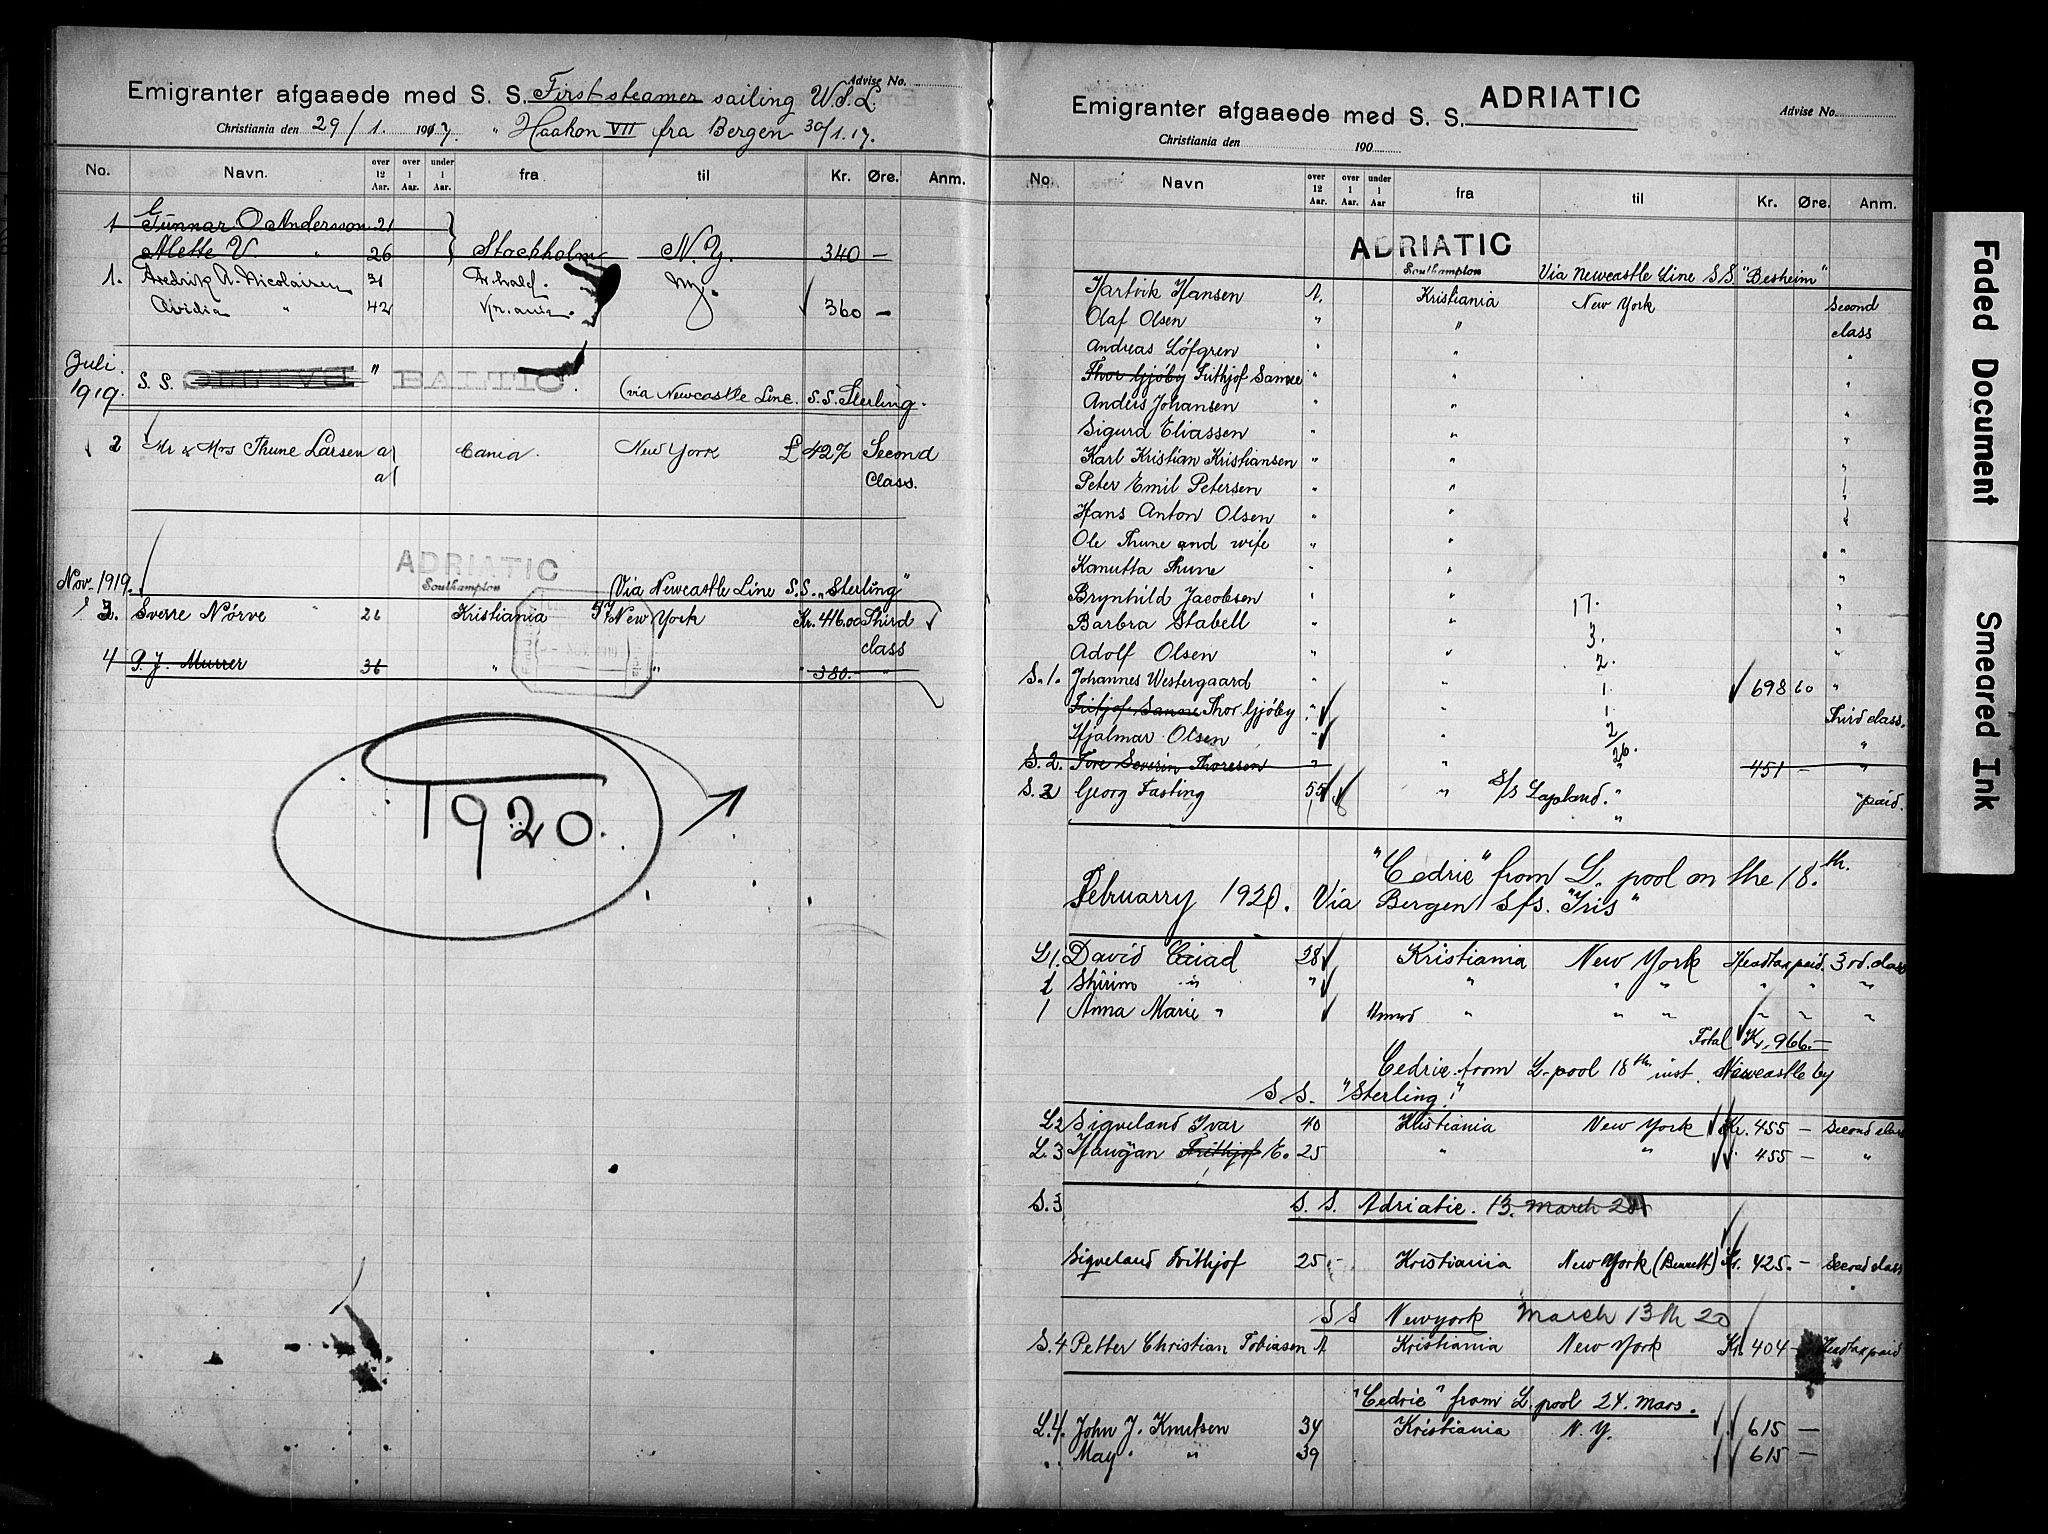 Advise No.
Emigranter afgaaede med S. S. First steamer sailing W.S.L.
Christiania den 29/1. 1917. " Haakon VII fra Bergen 30/1.17.
No. Navn. over 12 Aar. over 1 Aar. under 1 Aar. fra til Kr. Øre. Anm.
1 Gunnar O Andersson 21
Alette V. " 26 Stockholm N.Y. 340 —
1. Fredrik A. Nicolaisen 31 N.Y.
" 42 360 —
Juli 1919. S. S. BALTIC " BALTIC (via Newcastle Line. S.S. Sterling.
2 Mr & Mrs Thune Larsen a/ Cania. New York £ 42% Second
a/ Class.
ADRIATIC
Nov. 1919. Southampton Via Newcastle Line S.S. "Sterling"
3. Sverre Nörve " 26 Kristiania New York Kr. 416.00 Third
class
4 P. J. Murrer 36 " " " 380.— "
1920.
Emigranter afgaaede med S. S. ADRIATIC
Advise No.
Christiania den 190
No. Navn over 12 Aar. over 1 Aar. under 1 Aar fra til Kr. Øre. Anm.
ADRIATIC
Southampton Via Newcastle Line S.S. "Besheim"
Hartvik Hansen A. Kristiania New York Second
Olaf Olsen " " class
Andreas Löfgren " " "
Thor Gjöby Frithjof Sanne " " "
Anders Johansen " " "
Sigurd Eliassen " " "
Karl Kristian Kristiansen " " "
Peter Emil Petersen " " "
Hans Anton Olsen " "
Ole Thune and wife " " "
Kanutta Thune " " "
Brynhild Jacobsen " " 17. "
Barbra Stabell " " 3. "
Adolf Olsen " " 2. "
S.1. Johannes Westergaard " " 1. 698 60 "
Frithjof Sanne Thor Gjöby " " 1. Third class.
Hjalmar Olsen " " 2 "
26.
S.2. Tore Severin Thoresen " " " 451 — "
S.2 Georg Fasting 55 " S/S Lapland. " " paid.
"
"Cedric" from L.pool on the 18.th.
Februarry 1920. Via Bergen S/S. "Iris"
L1. David Caiad 28 Kristiania New York Headtax paid. 3rd. class
1 Shirim " " " " " " " "
1 Anna Marie " " " " " " "
Total Kr. 966.—
Cedric from L-pool 18th inst. Newcastle by
S S. "Sterling"
L2 Sigveland Ivar 40 Kristiania New York Kr. 455 — Second class
L.3 Haugan Frithjof E. 25 " " 455 — "
S.3 S. S. Adriatic. 13. March 20
Sigveland Frithjof 25 Kristiania New York (Bennett) Kr. 425. — Second class
S S Newyork March 13th 20
S.4 Petter Christian Tobiasen A Kristiania New York Kr. 404 — Headtax paid
"Cedric" from L.pool 24. Mars.
L.4. John J. Knutsen 34 Kristiania N.Y. 615 —
May " 39 615 —
Faded Document
Smeared Ink